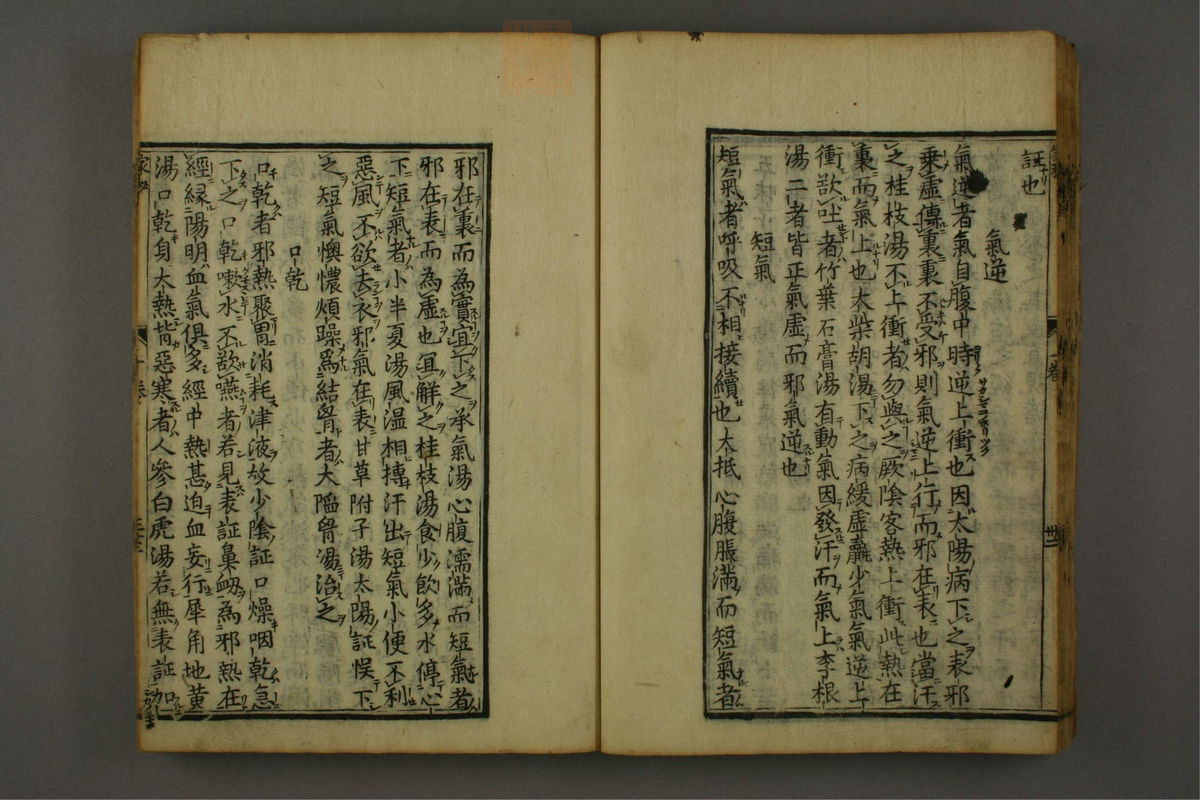 証也
氣逆
氣逆者氣自腹中時逆上衝也因太陽病下之表邪
乗虛傳裏裏不受邪則氣逆上行而邪在表也當汗
之桂枝湯不上衝者勿與之厥陰客熱上衝此熱在
裏而氣上也大柴胡湯下之病緩虛羸少氣氣逆上
衝欲吐者竹葉石膏湯有動氣因發汗而氣上李根
湯二者皆正氣虛而邪氣逆也
短氣
短氣者呼吸不相接續也大抵心腹脹滿而短氣者
邪在裏而為實宜下之承氣湯心腹濡滿而短氣者
邪在表而為虛也宜解之桂枝湯食少飲多水停心
下短氣者小半夏湯風温相搏汗出短氣小便不利
惡風不欲去衣邪氣在表甘草附子湯太陽証悞下
之短氣懊憹煩躁為結胷者大陥胷湯治之
口乾
口乾者邪熱聚胃消耗津液故少陰証口燥咽乾急
下之口乾嗽水不欲嚥者若見表証鼻衂為邪熱在
經緣陽明血氣俱多經中熱甚迫血妄行犀角地黄
湯口乾身大熱背惡寒者人參白虎湯若無表証